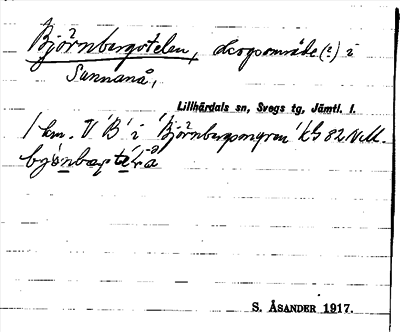 Björnbergstelen, skogsområde (?) i
Sunnanå,
Lillhärdals sn, Svegs tg, Jämtl. l.
1 km. V 'B' i 'Björnbergsmyren' kG 82 NvM.
S. ÅSANDER 1917.